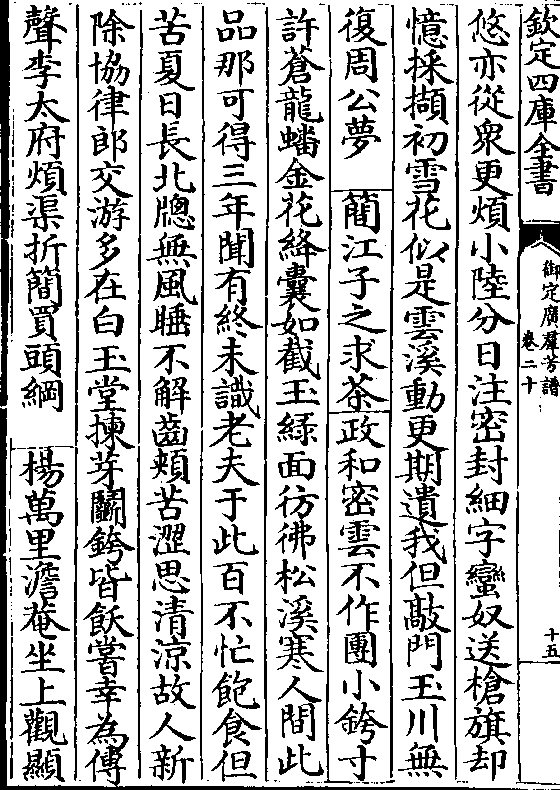 欽定四庫全書
御定廣羣芳譜
卷二十
十五
悠亦從衆更煩小陸分日注密封細字蠻奴送槍旗却
憶採擷初雪花似是雲溪動更期遺我但敲門玉川無
復周公夢 蘭江子之求茶 政和密雲不作團小銙寸
許蒼龍蟠金花絳囊如截玉綠面彷彿松溪寒人間此
品那可得三年聞有終未識老夫于此百不忙飽食但
苦夏日長北牕無風睡不解齒頰苦澀思清涼故人新
除協律郎交游多在白玉堂揀芽鬭銙皆飫嘗幸為傳
聲李太府煩渠折簡買頭綱 楊萬里澹菴坐上觀顯